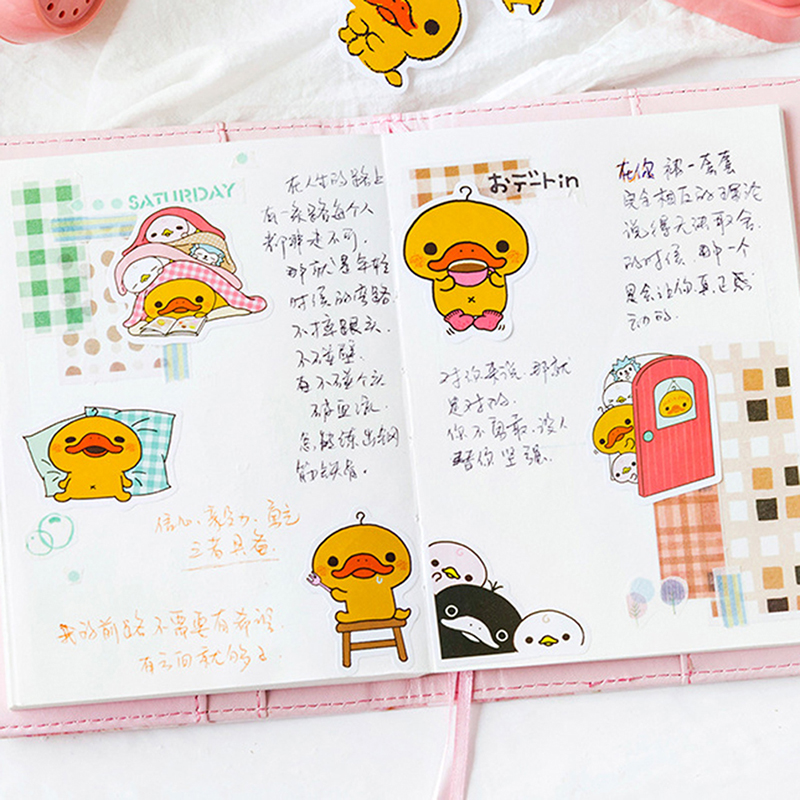 SATURDAY
在人生的路上
有一条路每个人
都非走不可.
那就是年轻
时候的弯路
不摔跟头.
不碰壁.
有不碰个头
破血流.
怎能炼出钢
筋铁骨。
信心、毅力、勇气
三者具备.
我的前路不需要有希望.
有
就够了
おデートin
在你被一套套
完全相反的理论
说得无法取舍.
的时候.那一个
是会让你真正感
动的.
对你来说.那就
是对的.
你不勇敢.没人
替你坚强.